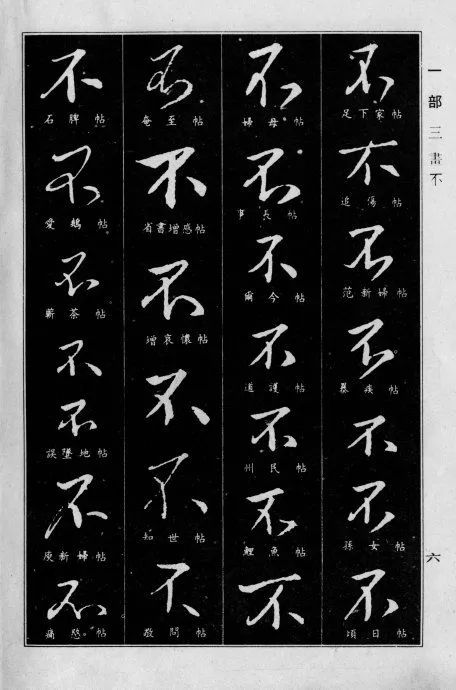 一部 三畫 不
不
足下家帖
不
追傷帖
不
范新婦帖
不
暴疾帖
不
不
孫女帖
不
頃日帖
不
婦母帖
不
長帖
不
爾今帖
不
道護帖
不
州民帖
不
鯉魚帖
不
不
奄至帖
不
省書增感帖
不
增哀懷帖
不
不
知世帖
不
敬問帖
不
石脾帖
不
愛鵝帖
不
蘄茶帖
不
不
誤墜地帖
不
庾新婦帖
不
痛愍帖
六